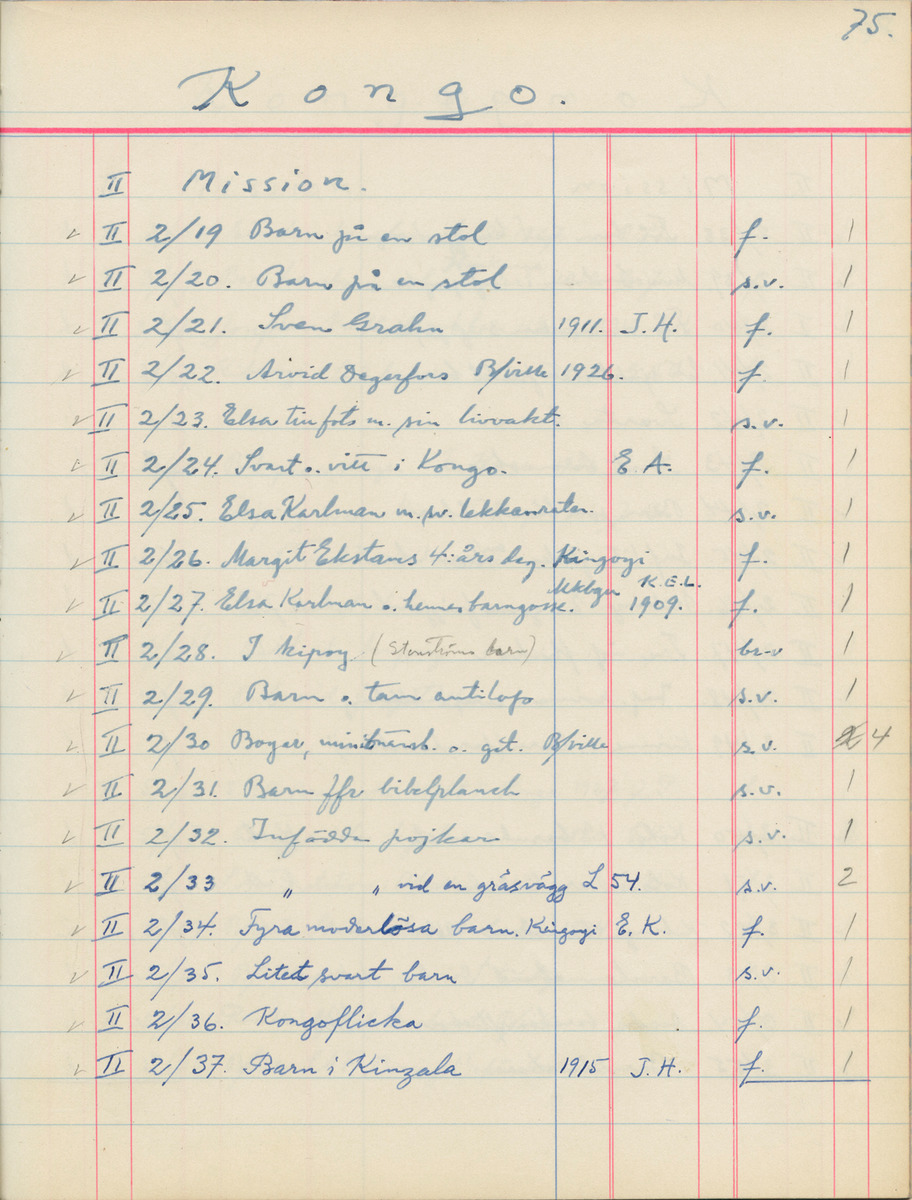 75.
Kongo.
II Mission.
✓ II 2/19 Barn på en stol f. 1
✓ II 2/20. Barn på en stol s.v. 1
✓ II 2/21. Sven Grahn 1911. J.H. f. 1
✓ II 2/22. Arvid Degerfors B/ville 1926. f. 1
✓ II 2/23. Elsa tin fots m. sin livvakt. s.v. 1
✓ II 2/24. Svart o. vitt i Kongo. E.A. f. 1
✓ II 2/25. Elsa Karlman m. sv. lekkamrater. s.v. 1
✓ II 2/26. Margit Ekstams 4:årsdag. Kingogi f. 1
✓ II 2/27. Elsa Karlman o. hennes barngosse. Mkbgu 1909. K.E.L. f. 1
✓ II 2/28. I kipoy (Stenströms barn) br-v 1
✓ II 2/29. Barn o. tam antilop s.v. 1
✓ II 2/30 Boyar, o. git. B/ville s.v. 4
✓ II 2/31. Barn ffr bibelplanch s.v. 1
✓ II 2/32. Infödda pojkar s.v. 1
✓ II 2/33 „ „ vid en gräsvägg L 54. s.v. 2
✓ II 2/34. Fyra moderlösa barn. Kingogi E.K. f. 1
✓ II 2/35. Litet svart barn s.v. 1
✓ II 2/36. Kongoflicka f. 1
✓ II 2/37. Barn i Kinzala 1915 J.H. f. 1